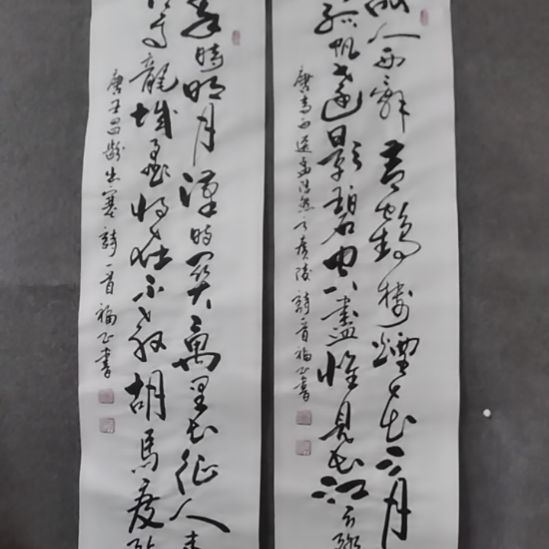 故人西辭黃鶴樓煙花三月
孤帆遠影碧空盡惟見長江天際
唐李白送孟浩然之廣陵 詩一首 福書
秦時明月漢時關萬里長征人未
使龍城飛將在不教胡馬度陰
唐王昌齡出塞 詩一首 福書